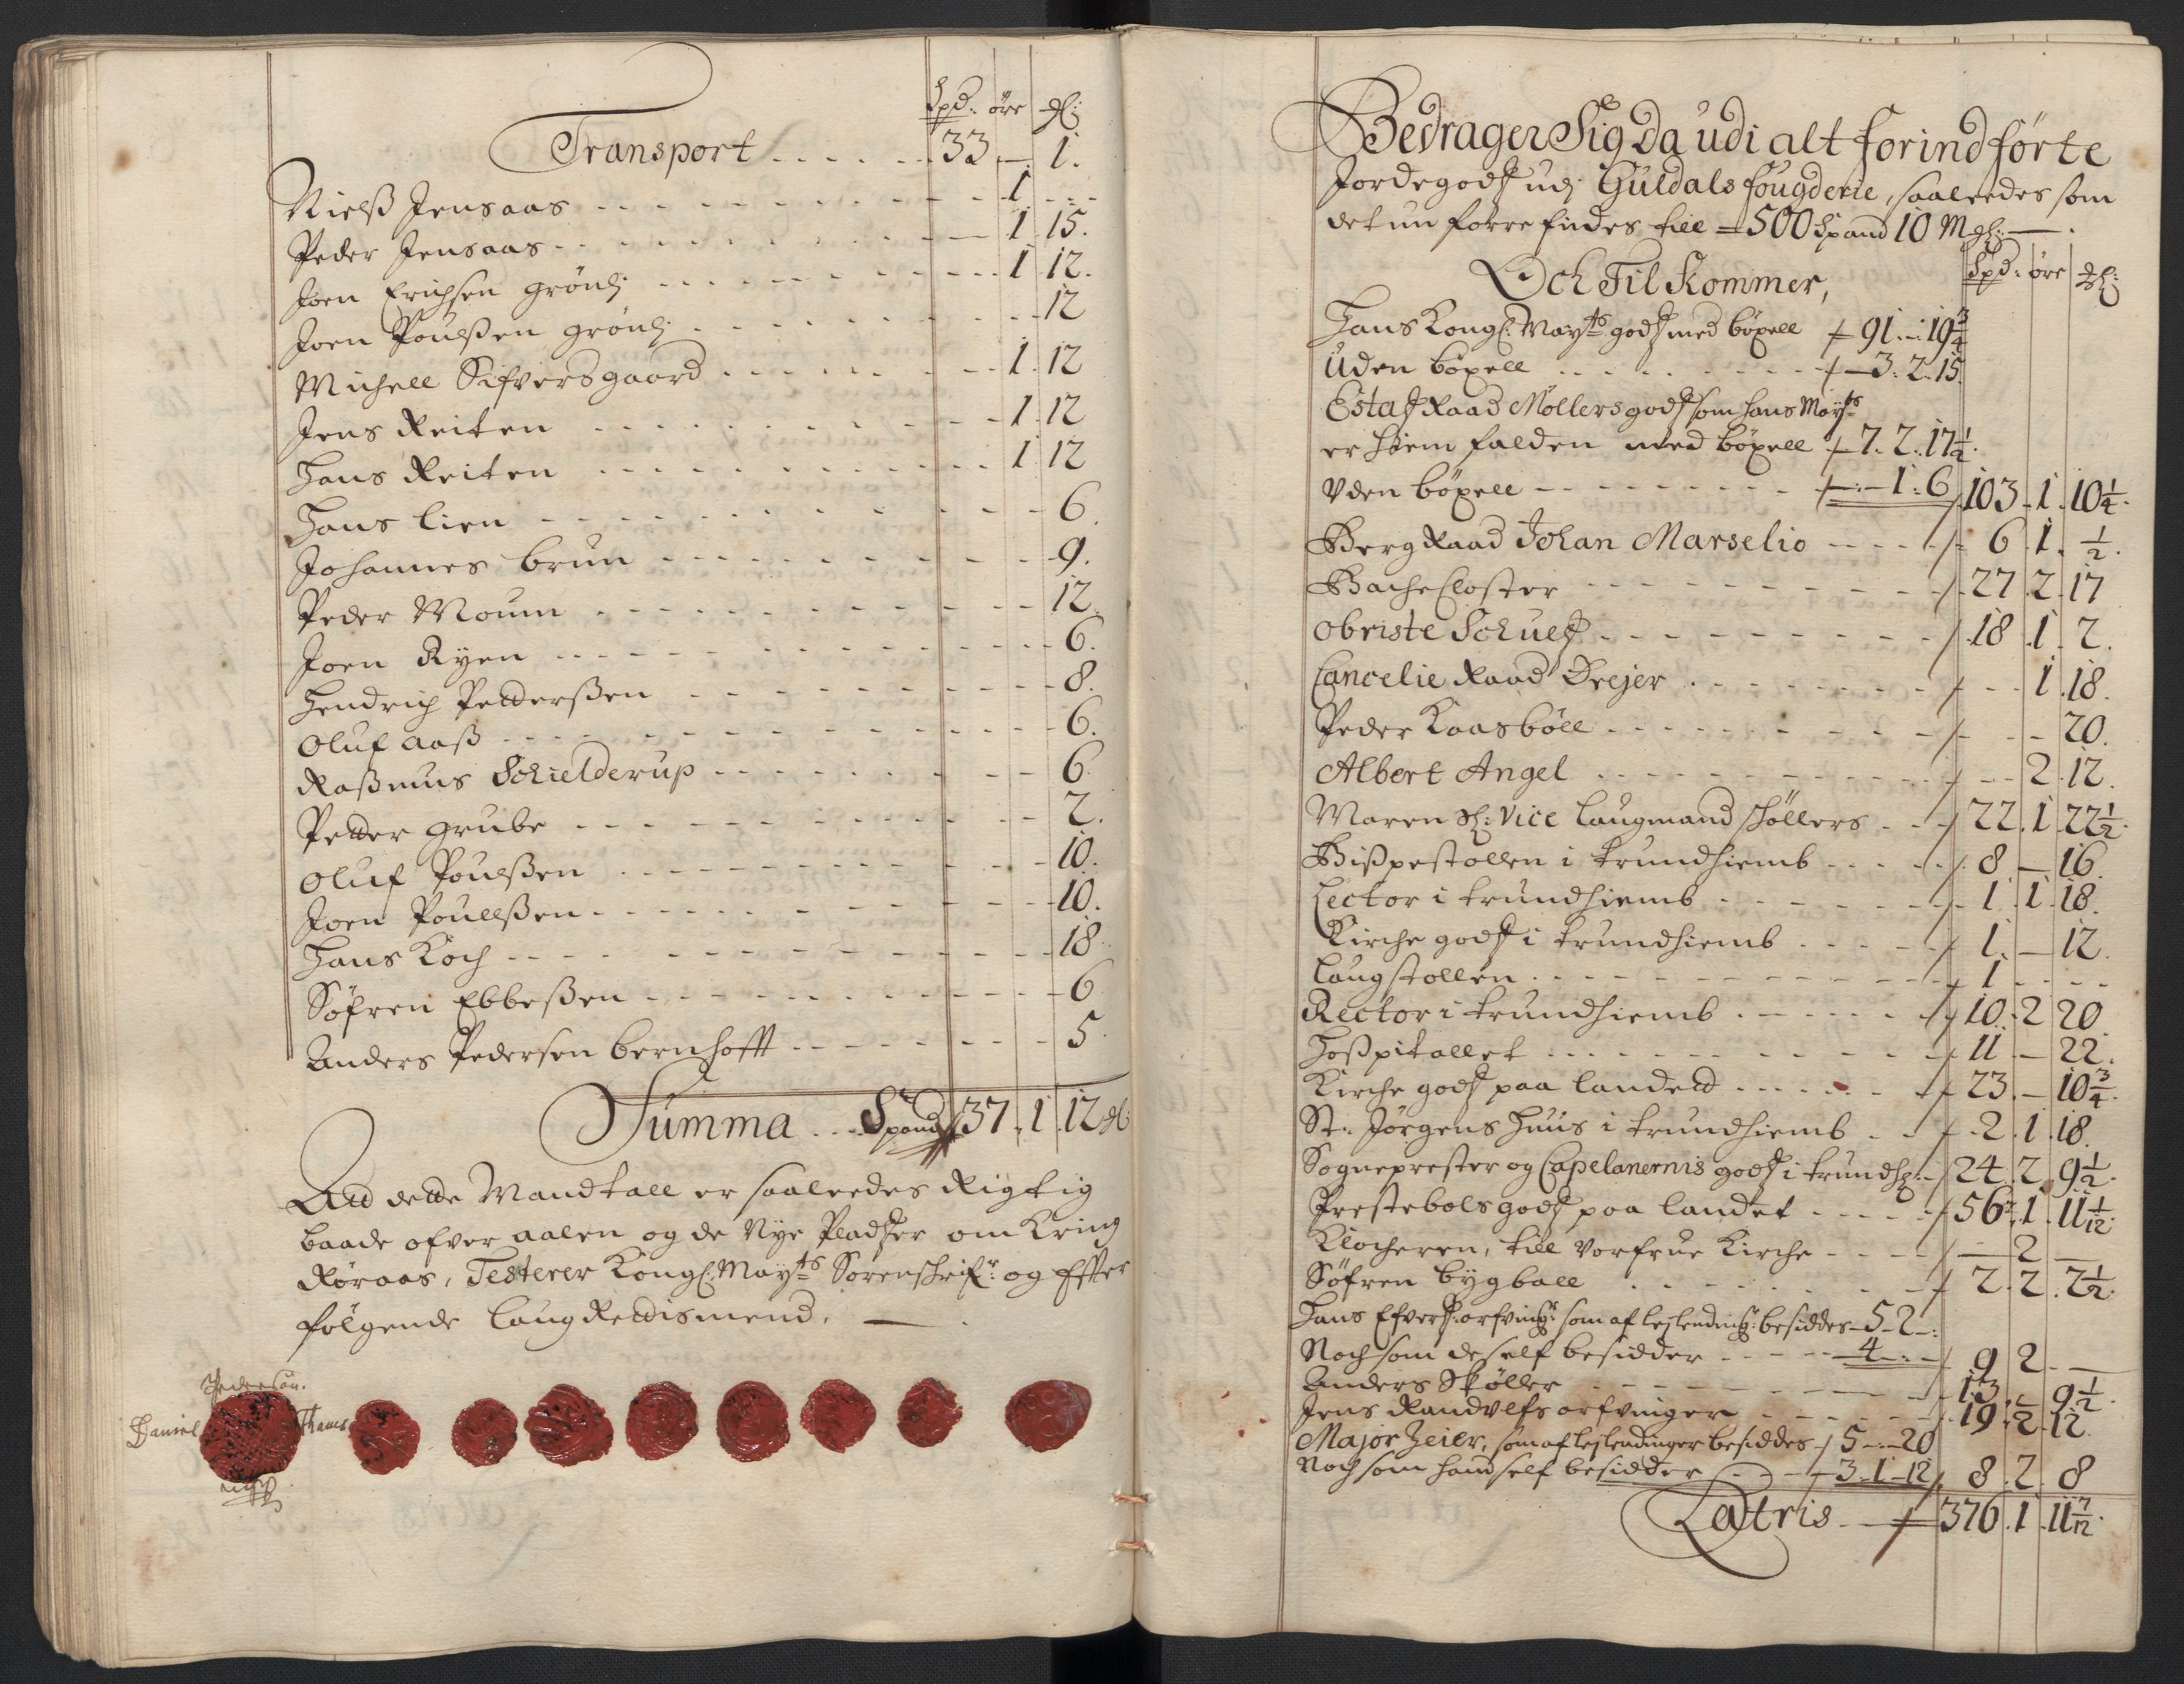 Spd: öre gl:
Transport . . . . . . 33 — 1.
Nielß Jensaas - - - 1 - - -
Peder Jensaas - - - 1 15.
Joen Erichsen grönli - - - 1 12.
Joen Poulßen grönli - - - 12
Michell Sifversgaard - - - 1 12
Jens Reiten - - - 1 12
Hans Reiten - - - 1 12
Hans lien - - - 6.
Johannes brun - - - 9.
Peder Moum - - - 12.
Joen Ryen - - - 6.
Hendrich Pedderßen - - - 8.
Oluf aaß - - - 6.
Raßmus Schielderup - - - 6
Petter grube - - - 2.
Oluf Poulßen - - - 10.
Joen Poulßen - - - 10.
Hans Koch - - - 18
Söfren Ebbeßen - - - 6
Anders Pedersen bernhofft - - - 5
Summa . . . Spand 37. 1. 12 gl:
Att dette Mandtall er saaleedes Rigtig
baade ofver aalen og de Nye Pladser om Kring
Röraas, Testerer Kongl: Mayts Sorenschrifr: og effter
følgende laug Rettismend. —
Pedersøn.
Daniel Thams

Bedrager Sig da udi alt forindförte
Jordegods udj Guldals fougderie, saaleedes som
det nu forre findes till = 500 Spand 10 Mgl: —
Och Til Kommer, Spd: öre gl:
Hans Kongl: Mayts godß med böxell 91. - 19 3/4
Uden böxell - - - 3. 2. 15.
Estatz Raad Möllers godß som hans Mayts
er hiem falden med böxell 7. 2. 17 1/2.
Uden böxell - - - 1: 6 103. 1. 10 1/4.
Berg Raad Johan Marselio - - - 6. 1. 1/2.
Bache Closter - - - 27. 2. 17
Obriste Schultz - - - 18. 1. 2.
Cancelie Raad Drejer - - - 1. 18.
Peder Kaasböll - - - 20.
Albert Angel - - - 2. 12.
Maren Sl: Vice laugmand Schöllers - - 22. 1. 22 1/2.
Bißpestollen i trundhiemb - - - 8. — 16.
Lector i trundhiemb - - - 1. 1. 18.
Kirche godß i trundhiemb - - - 1. — 12.
laugstollen - - - 1 - - -
Rector i trundhiemb - - - 10. 2 20
Hoßpitallet - - - 11 — 22.
Kirche godß paa landed - - - 23. — 10 3/4.
St: Jörgens Huus i trundhiemb - - 2. 1. 18.
Sogneprester og Capelanernis godß i trundhl: - 24. 2. 9 1/2.
Prestebols godß paa landet - - - 56. 1. 11 1/12.
Klocheren, till Vorfrue Kirche - - - 2 —
Söfren bygball - - - 2. 2. 2 1/2.
Hans Efvers: arfving: som af leylending: besiddes - 5 - 2 -:
Noch som de self besidder - - - 4 - - 9 2 - -
Anders Sköller - - - 13. — 9 1/2.
Jens Randulfs arfvinger - - - 19. 2. 12.
Major Zeier, som af leylendinger besiddes 5 - - 20
Noch som hand self besidder - - - 3 - 1 - 12 8. 2. 8
Latris - 376. 1. 11 7/12.